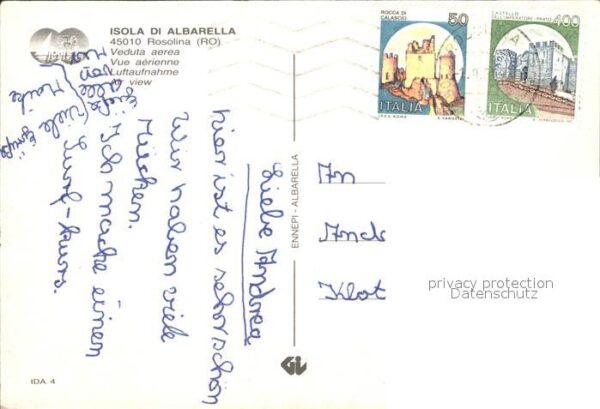 ISOLA DI ALBARELLA
45010 Rosolina (RO)
Veduta aerea
Vue aérienne
Luftaufnahme
view
ROCCA DI CALASCIO
50
ITALIA
CASTELLO DELL'IMPERATORE - PRATO
400
ITALIA
Liebe Andrea
hier ist es sehr schön
Wir haben viele
Mücken.
Ich mache einen
Surf-kurs.
Viele Grüße
Meike
ENNEPI - ALBARELLA
An
Klot
privacy protection
Datenschutz
IDA. 4